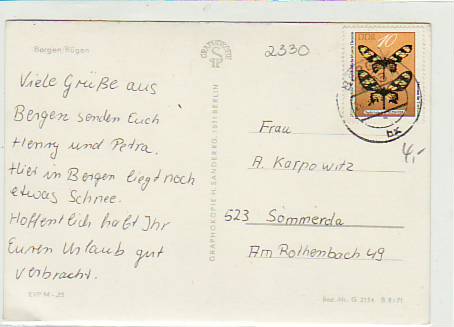 Bergen/Rügen
Viele Grüße aus
Bergen senden Euch
Henny und Petra.
Hier in Bergen liegt noch
etwas Schnee.
Hoffentlich habt Ihr
Euren Urlaub gut
verbracht.
EVP M -,25
GRAPHOKOPIE H. SANDER KG. 1511 BERLIN
2330
DDR 10
Frau
A. Karpowitz
523 Sömmerda
Am Rothenbach 49
4,-